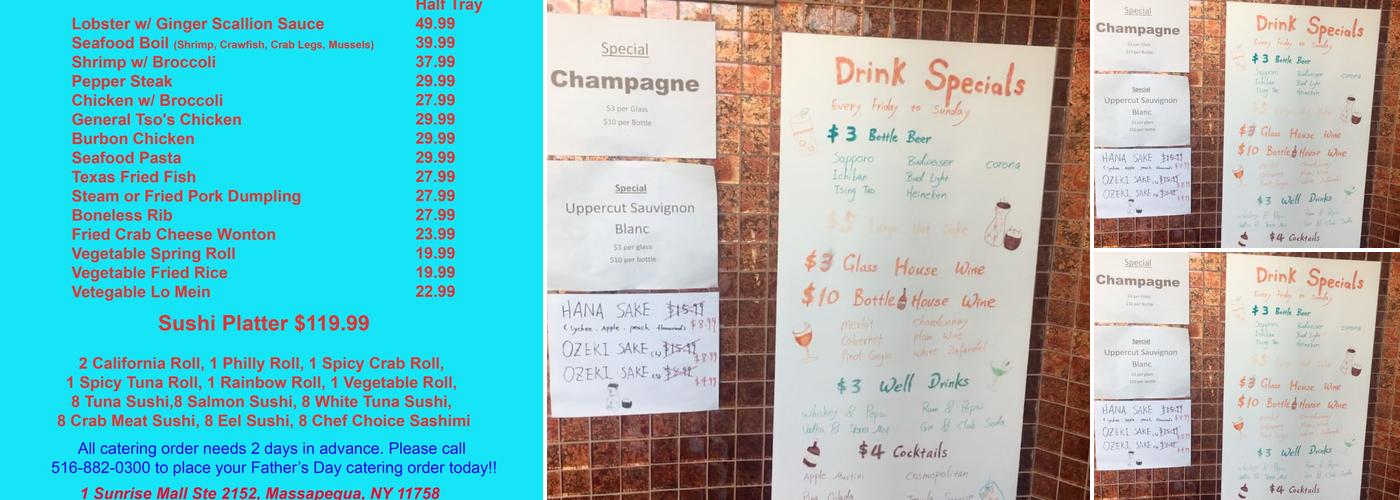 Half Tray
Lobster w/ Ginger Scallion Sauce 49.99
Seafood Boil (Shrimp, Crawfish, Crab Legs, Mussels) 39.99
Shrimp w/ Broccoli 37.99
Pepper Steak 29.99
Chicken w/ Broccoli 27.99
General Tso's Chicken 29.99
Burbon Chicken 29.99
Seafood Pasta 29.99
Texas Fried Fish 27.99
Steam or Fried Pork Dumpling 27.99
Boneless Rib 27.99
Fried Crab Cheese Wonton 23.99
Vegetable Spring Roll 19.99
Vegetable Fried Rice 19.99
Vetegable Lo Mein 22.99
Sushi Platter $119.99
2 California Roll, 1 Philly Roll, 1 Spicy Crab Roll,
1 Spicy Tuna Roll, 1 Rainbow Roll, 1 Vegetable Roll,
8 Tuna Sushi,8 Salmon Sushi, 8 White Tuna Sushi,
8 Crab Meat Sushi, 8 Eel Sushi, 8 Chef Choice Sashimi
All catering order needs 2 days in advance. Please call
516-882-0300 to place your Father's Day catering order today!!
1 Sunrise Mall Ste 2152, Massapequa, NY 11758
Special
Champagne
$3 per Glass
$10 per Bottle
Special
Uppercut Sauvignon
Blanc
$3 per glass
$10 per bottle
HANA SAKE $15.99
(Lychee. Apple. peach flavored) $8.99
OZEKI SAKE (L) $15.99
$8.99
OZEKI SAKE (S)
$4.99
Drink Specials
Every Friday to Sunday
$3 Bottle Beer
Sapporo Budweiser corona
Ichiban Bud Light
Tsing Tao Heineken
$5 Large Hot Sake
$3 Glass House Wine
$10 Bottle House Wine
merlot chardonnay
Cabernet plum Wine
Pinot Grigio white Zinfandel
$3 Well Drinks
whiskey & Pepsi Rum & Pepsi
Vodka & Sierra Mist Gin & Club Soda
$4 Cocktails
Apple Martini Cosmopolitan
Pina Colada Tequila Sunrise
Special
Champagne
$3 per Glass
$10 per Bottle
Special
Uppercut Sauvignon
Blanc
HANA SAKE $15.99
OZEKI SAKE
OZEKI SAKE
Drink Specials
Every Friday to Sunday
$3 Bottle Beer
Sapporo Budweiser corona
Ichiban Bud Light
Tsing Tao Heineken
$3 Glass House Wine
$10 Bottle House Wine
$3 Well Drinks
$4 Cocktails
Special
Champagne
$3 per Glass
$10 per Bottle
Special
Uppercut Sauvignon
Blanc
HANA SAKE $15.99
OZEKI SAKE
OZEKI SAKE
Drink Specials
Every Friday to Sunday
$3 Bottle Beer
Sapporo Budweiser corona
Ichiban Bud Light
Tsing Tao Heineken
$3 Glass House Wine
$10 Bottle House Wine
$3 Well Drinks
$4 Cocktails